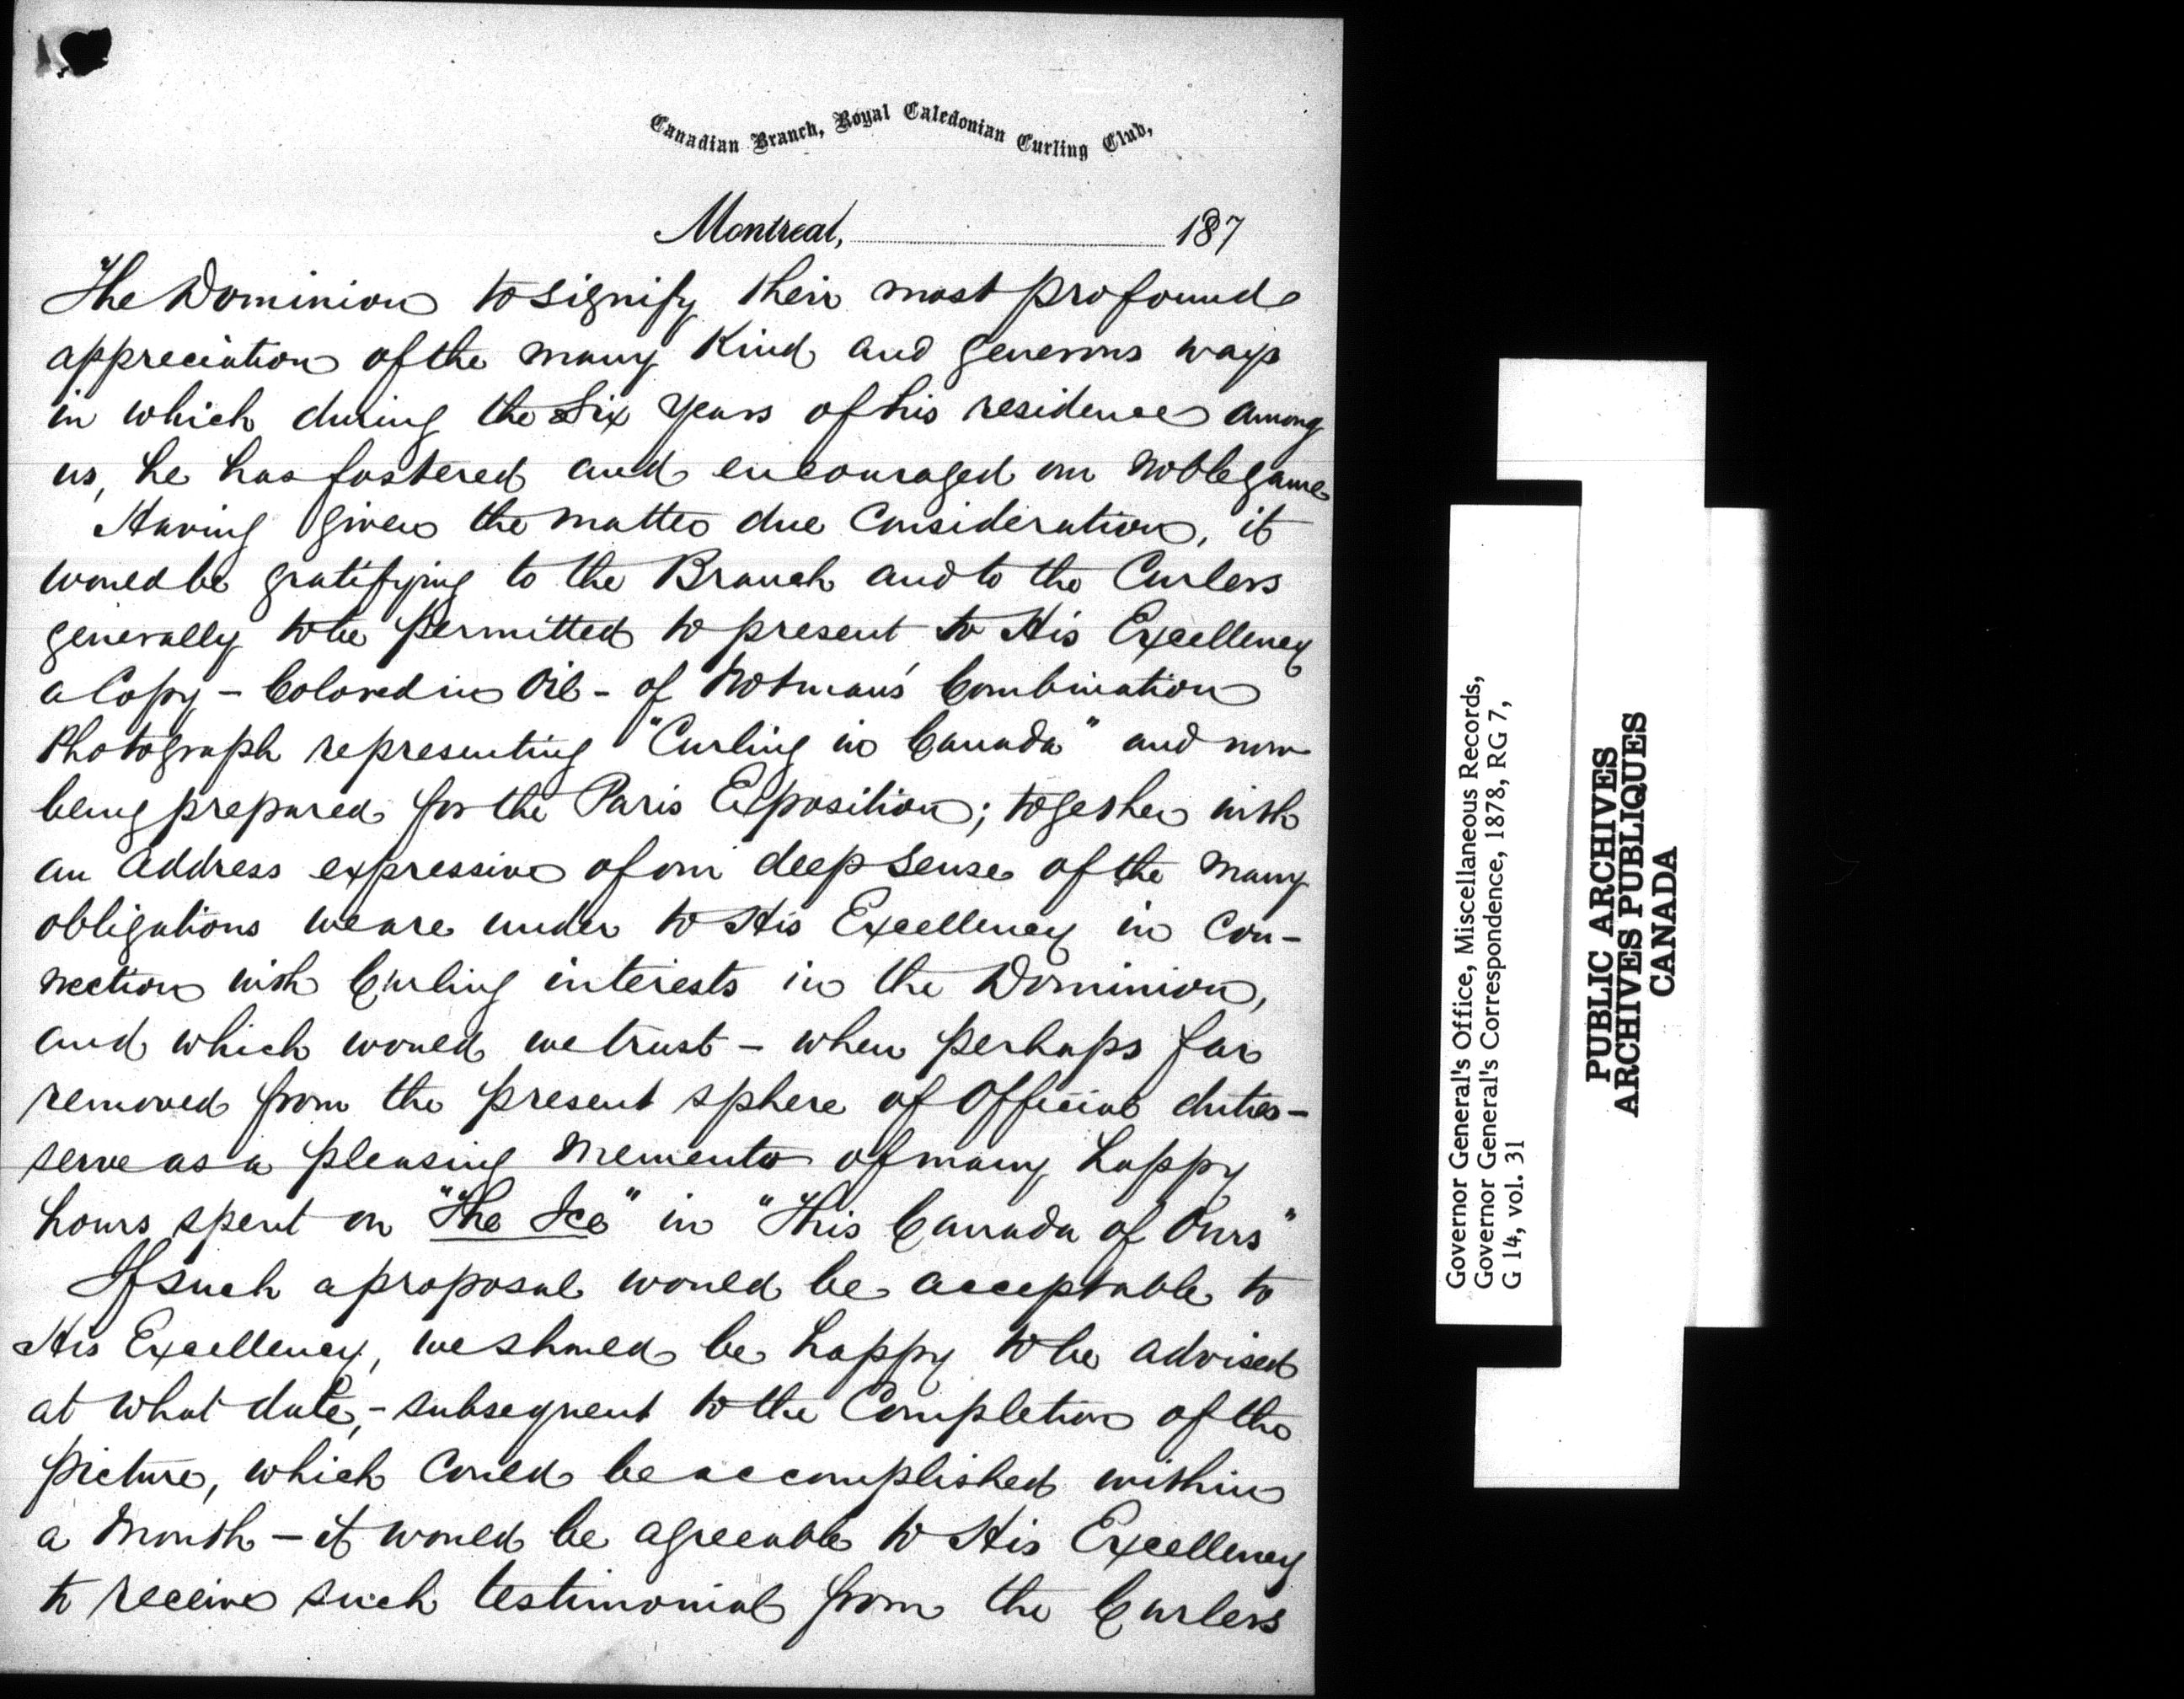 Canadian Branch, Royal Caledonian Curling Club,
Montreal, 187
The Dominion to signify their most profound
appreciation of the many Kind and generous ways
in which during the Six years of his residence among
us, he has fostered and encouraged our noble game
Having given the matter due Consideration, it
would be gratifying to the Branch and to the Curlers
generally to be permitted to present to His Excellency
a Copy - Colored in Oil - of Notman's Combination
Photograph representing "Curling in Canada" and now
being prepared for the Paris Exposition; together with
an Address expressive of our deep sense of the many
obligations we are under to His Excellency in Con-
nection with Curling interests in the Dominion,
and which would we trust - when perhaps far
removed from the present sphere of Official duties -
serve as a pleasing Memento of many happy
hours spent on "The Ice" in "This Canada of Ours"
If such a proposal would be acceptable to
His Excellency, we should be happy to be advised
at what date, - subsequent to the Completion of the
picture, which could be accomplished within
a Month - it would be agreeable to His Excellency
to receive such testimonial from the Curlers
Governor General's Office, Miscellaneous Records,
Governor General's Correspondence, 1878, RG 7,
G 14, vol. 31
PUBLIC ARCHIVES
ARCHIVES PUBLIQUES
CANADA